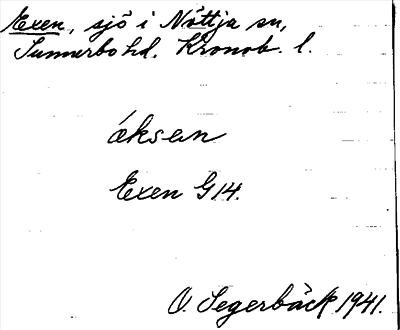 Exen, sjö i Nöttja sn,
Sunnerbo hd. Kronob. l.
áksen
Exen G14.
O. Segerbäck 1941.